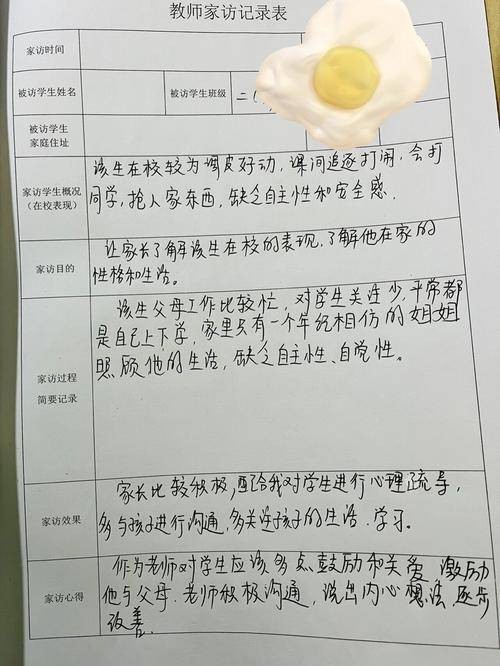 教师家访记录表
家访时间
被访学生姓名
被访学生班级
二(
被访学生
家庭住址
家访学生概况
(在校表现)
该生在校较为调皮好动，课间追逐打闹，会打
同学，抢人家东西，缺乏自主性和安全感．
家访目的
让家长了解该生在校的表现，了解他在家的
性格和生活。
家访过程
简要记录
该生父母工作比较忙，对学生关注少，平常都
是自己上下学，家里只有一个年纪相仿的姐姐
照顾他的生活，缺乏自主性、自觉性。
家访效果
家长比较积极，配合我对学生进行心理疏导，
多与孩子进行沟通，多关注孩子的生活．学习。
家访心得
作为老师对学生应该多点鼓励和关爱，激励
他与父母．老师积极沟通，说出内心想法，逐步
改善．